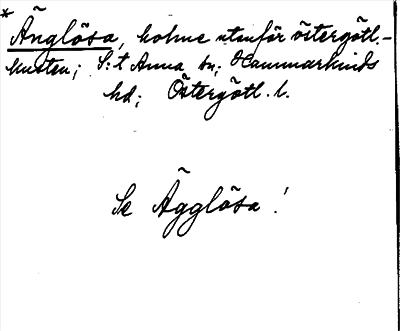 * Änglösa, holme utanför östergötl.-
kusten; S:t Anna sn; Hammarkinds
hd; Östergötl. l.
Se Ägglösa!